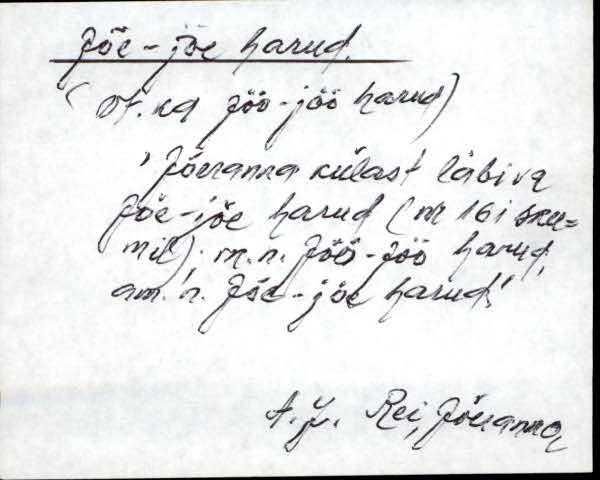 Jõe-jõe harud.
(vt. ka Jöö-jöö harud)
'Jõeranna külast läbiva
Jõe-jõe harud (nr 16 i skee=
mil). m.n. Jöö-jöö harud,
am. n. Jõe-jõe harud.'
A. J. Rei, Jõeranna